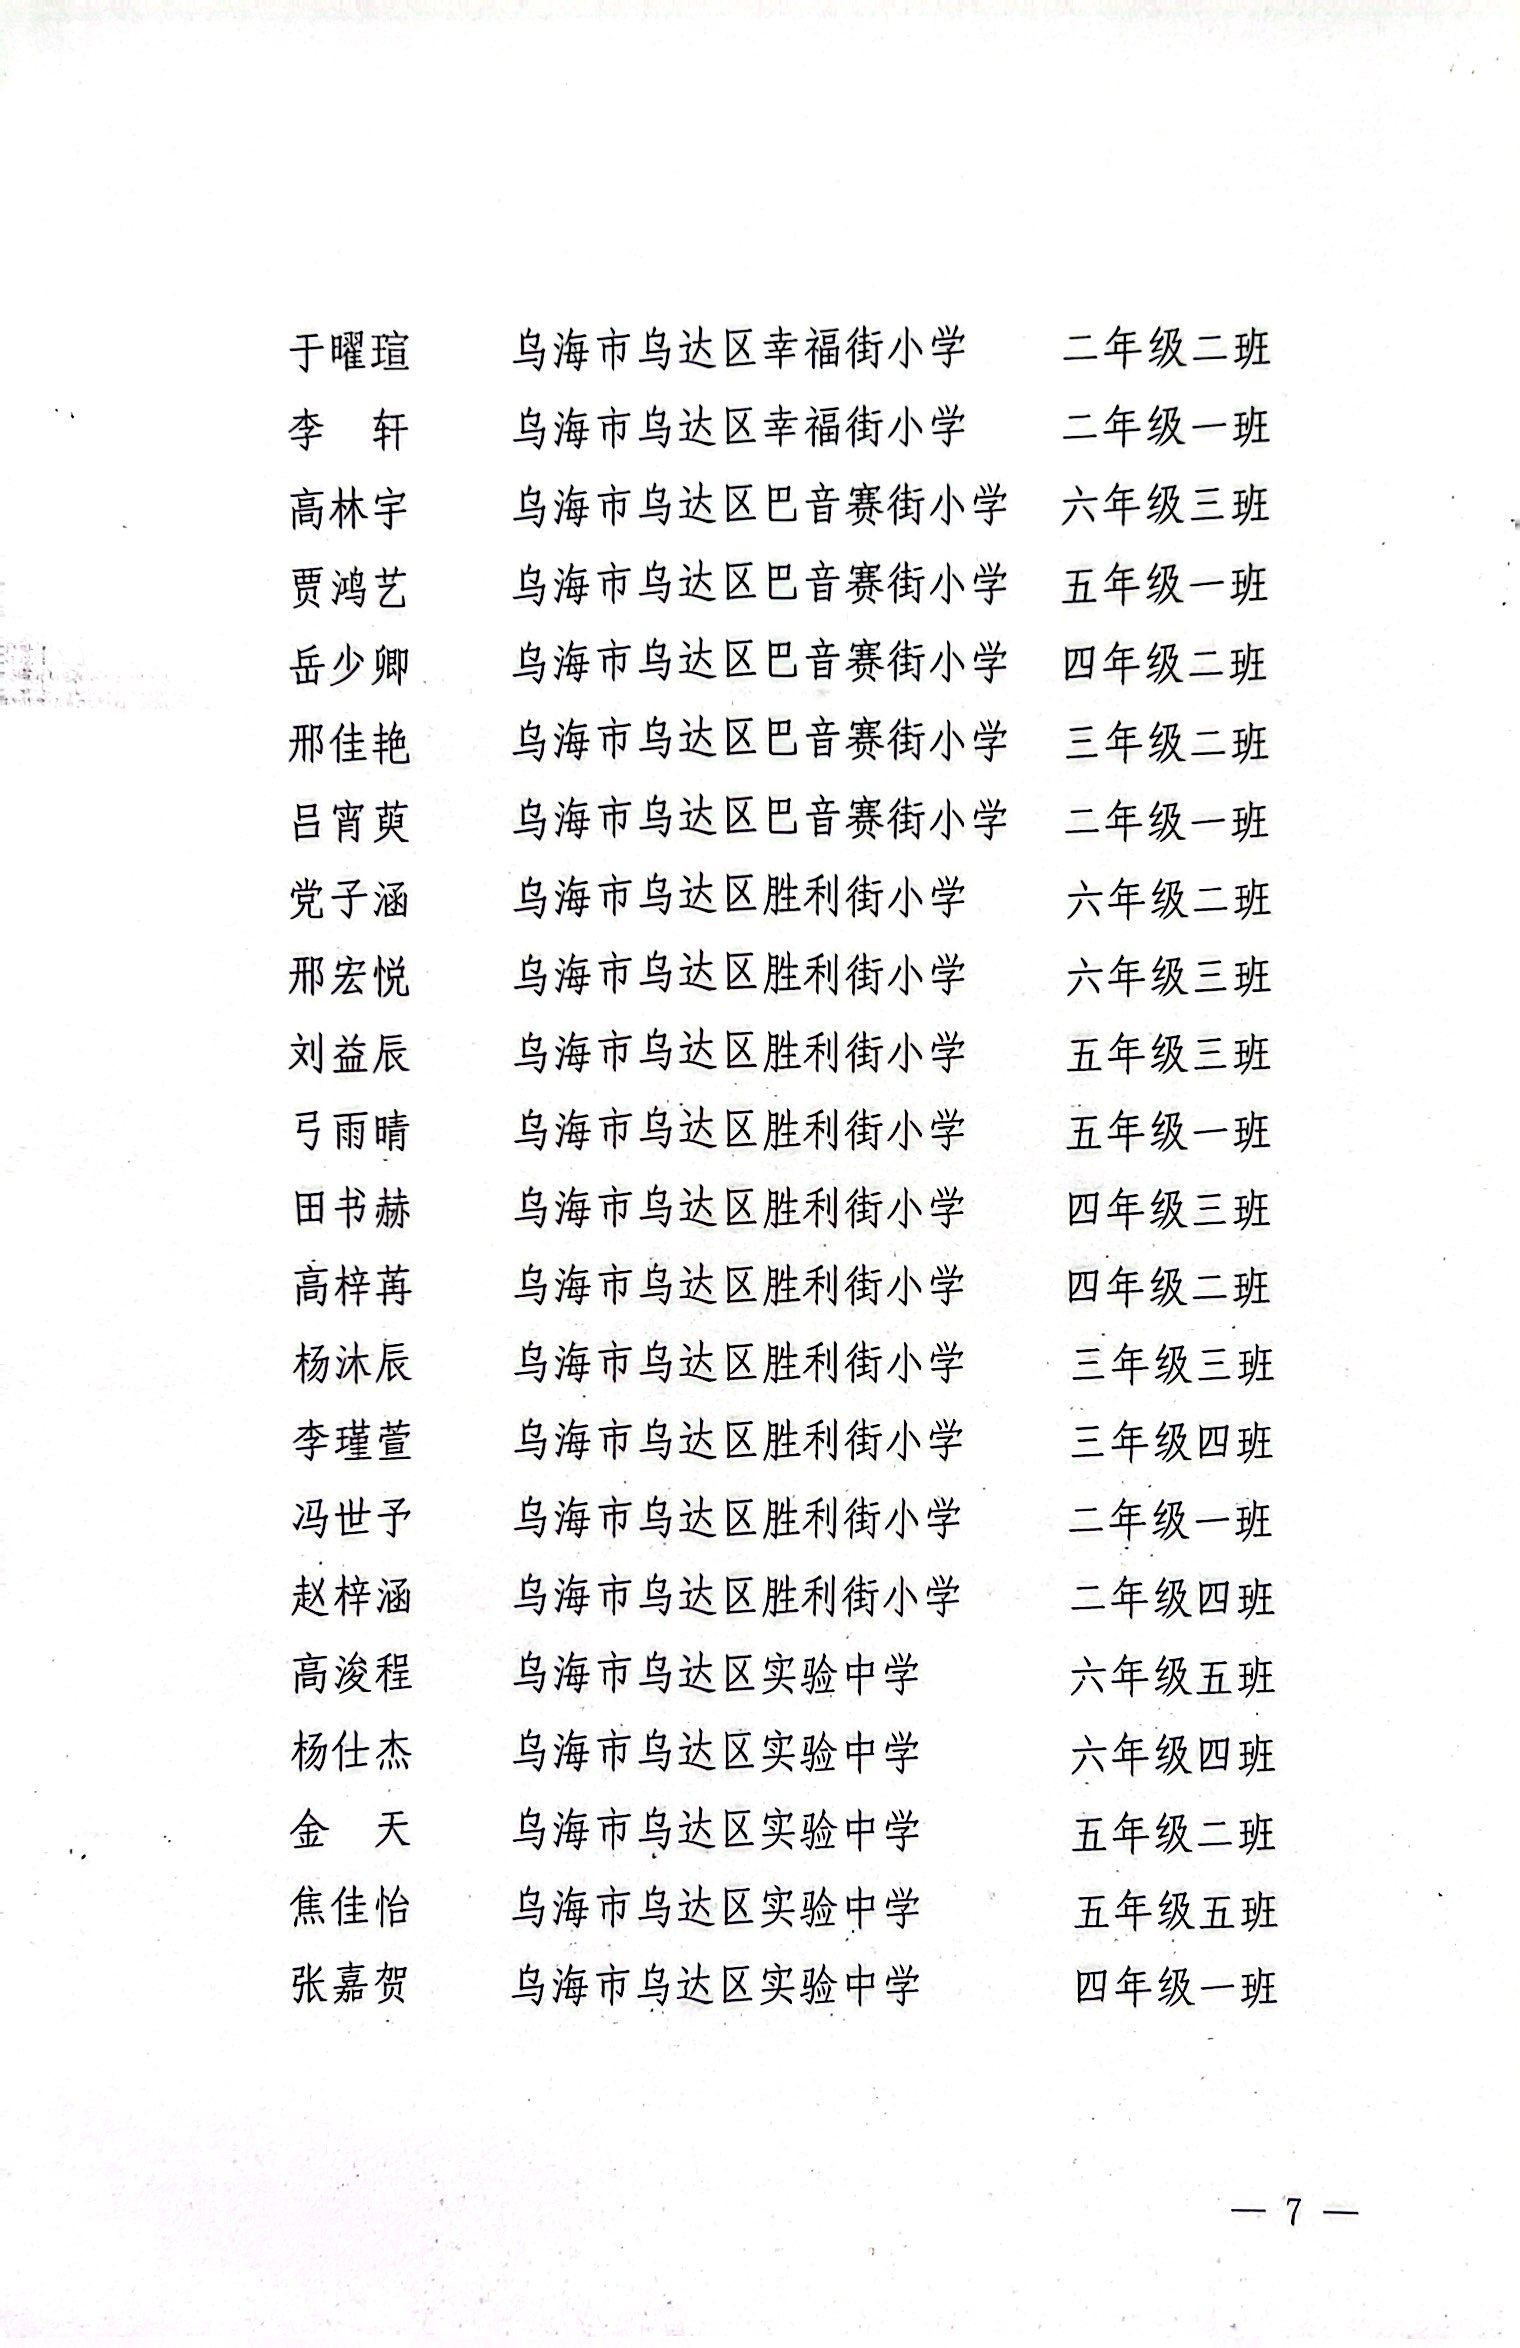 于曜瑄 乌海市乌达区幸福街小学 二年级二班
李 轩 乌海市乌达区幸福街小学 二年级一班
高林宇 乌海市乌达区巴音赛街小学 六年级三班
贾鸿艺 乌海市乌达区巴音赛街小学 五年级一班
岳少卿 乌海市乌达区巴音赛街小学 四年级二班
邢佳艳 乌海市乌达区巴音赛街小学 三年级二班
吕宵萸 乌海市乌达区巴音赛街小学 二年级一班
党子涵 乌海市乌达区胜利街小学 六年级二班
邢宏悦 乌海市乌达区胜利街小学 六年级三班
刘益辰 乌海市乌达区胜利街小学 五年级三班
弓雨晴 乌海市乌达区胜利街小学 五年级一班
田书赫 乌海市乌达区胜利街小学 四年级三班
高梓苒 乌海市乌达区胜利街小学 四年级二班
杨沐辰 乌海市乌达区胜利街小学 三年级三班
李瑾萱 乌海市乌达区胜利街小学 三年级四班
冯世予 乌海市乌达区胜利街小学 二年级一班
赵梓涵 乌海市乌达区胜利街小学 二年级四班
高浚程 乌海市乌达区实验中学 六年级五班
杨仕杰 乌海市乌达区实验中学 六年级四班
金 天 乌海市乌达区实验中学 五年级二班
焦佳怡 乌海市乌达区实验中学 五年级五班
张嘉贺 乌海市乌达区实验中学 四年级一班
— 7 —